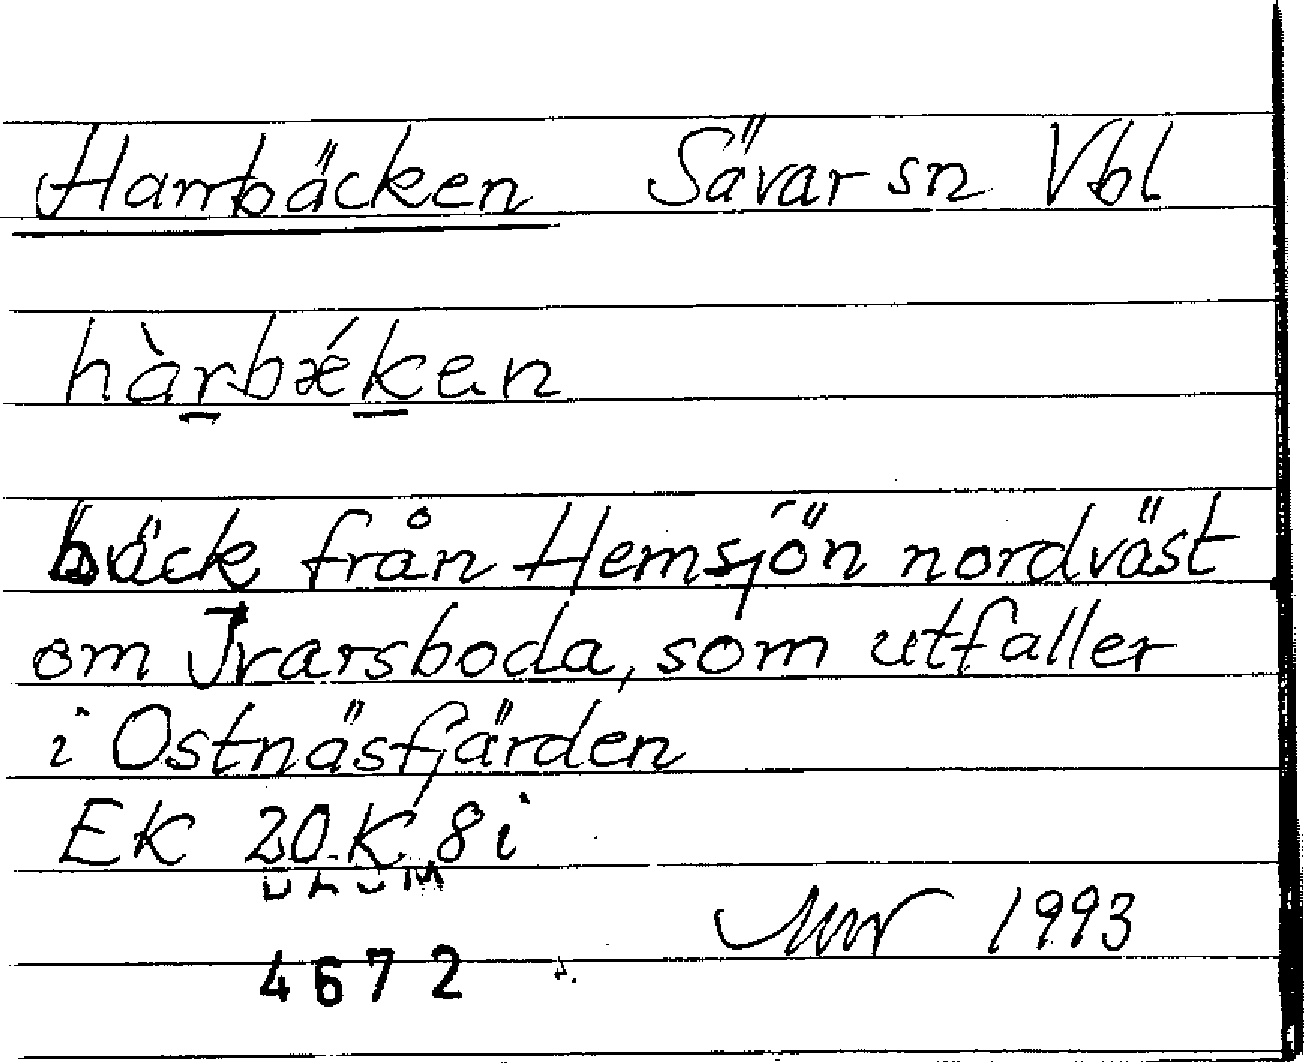 Harrbäcken Sävar sn Vbl
hàrbǽken
bäck från Hemsjön nordväst
om Ivarsboda, som utfaller
i Ostnäsfjärden
EK 20 K 8i
DAUM
1993
4672